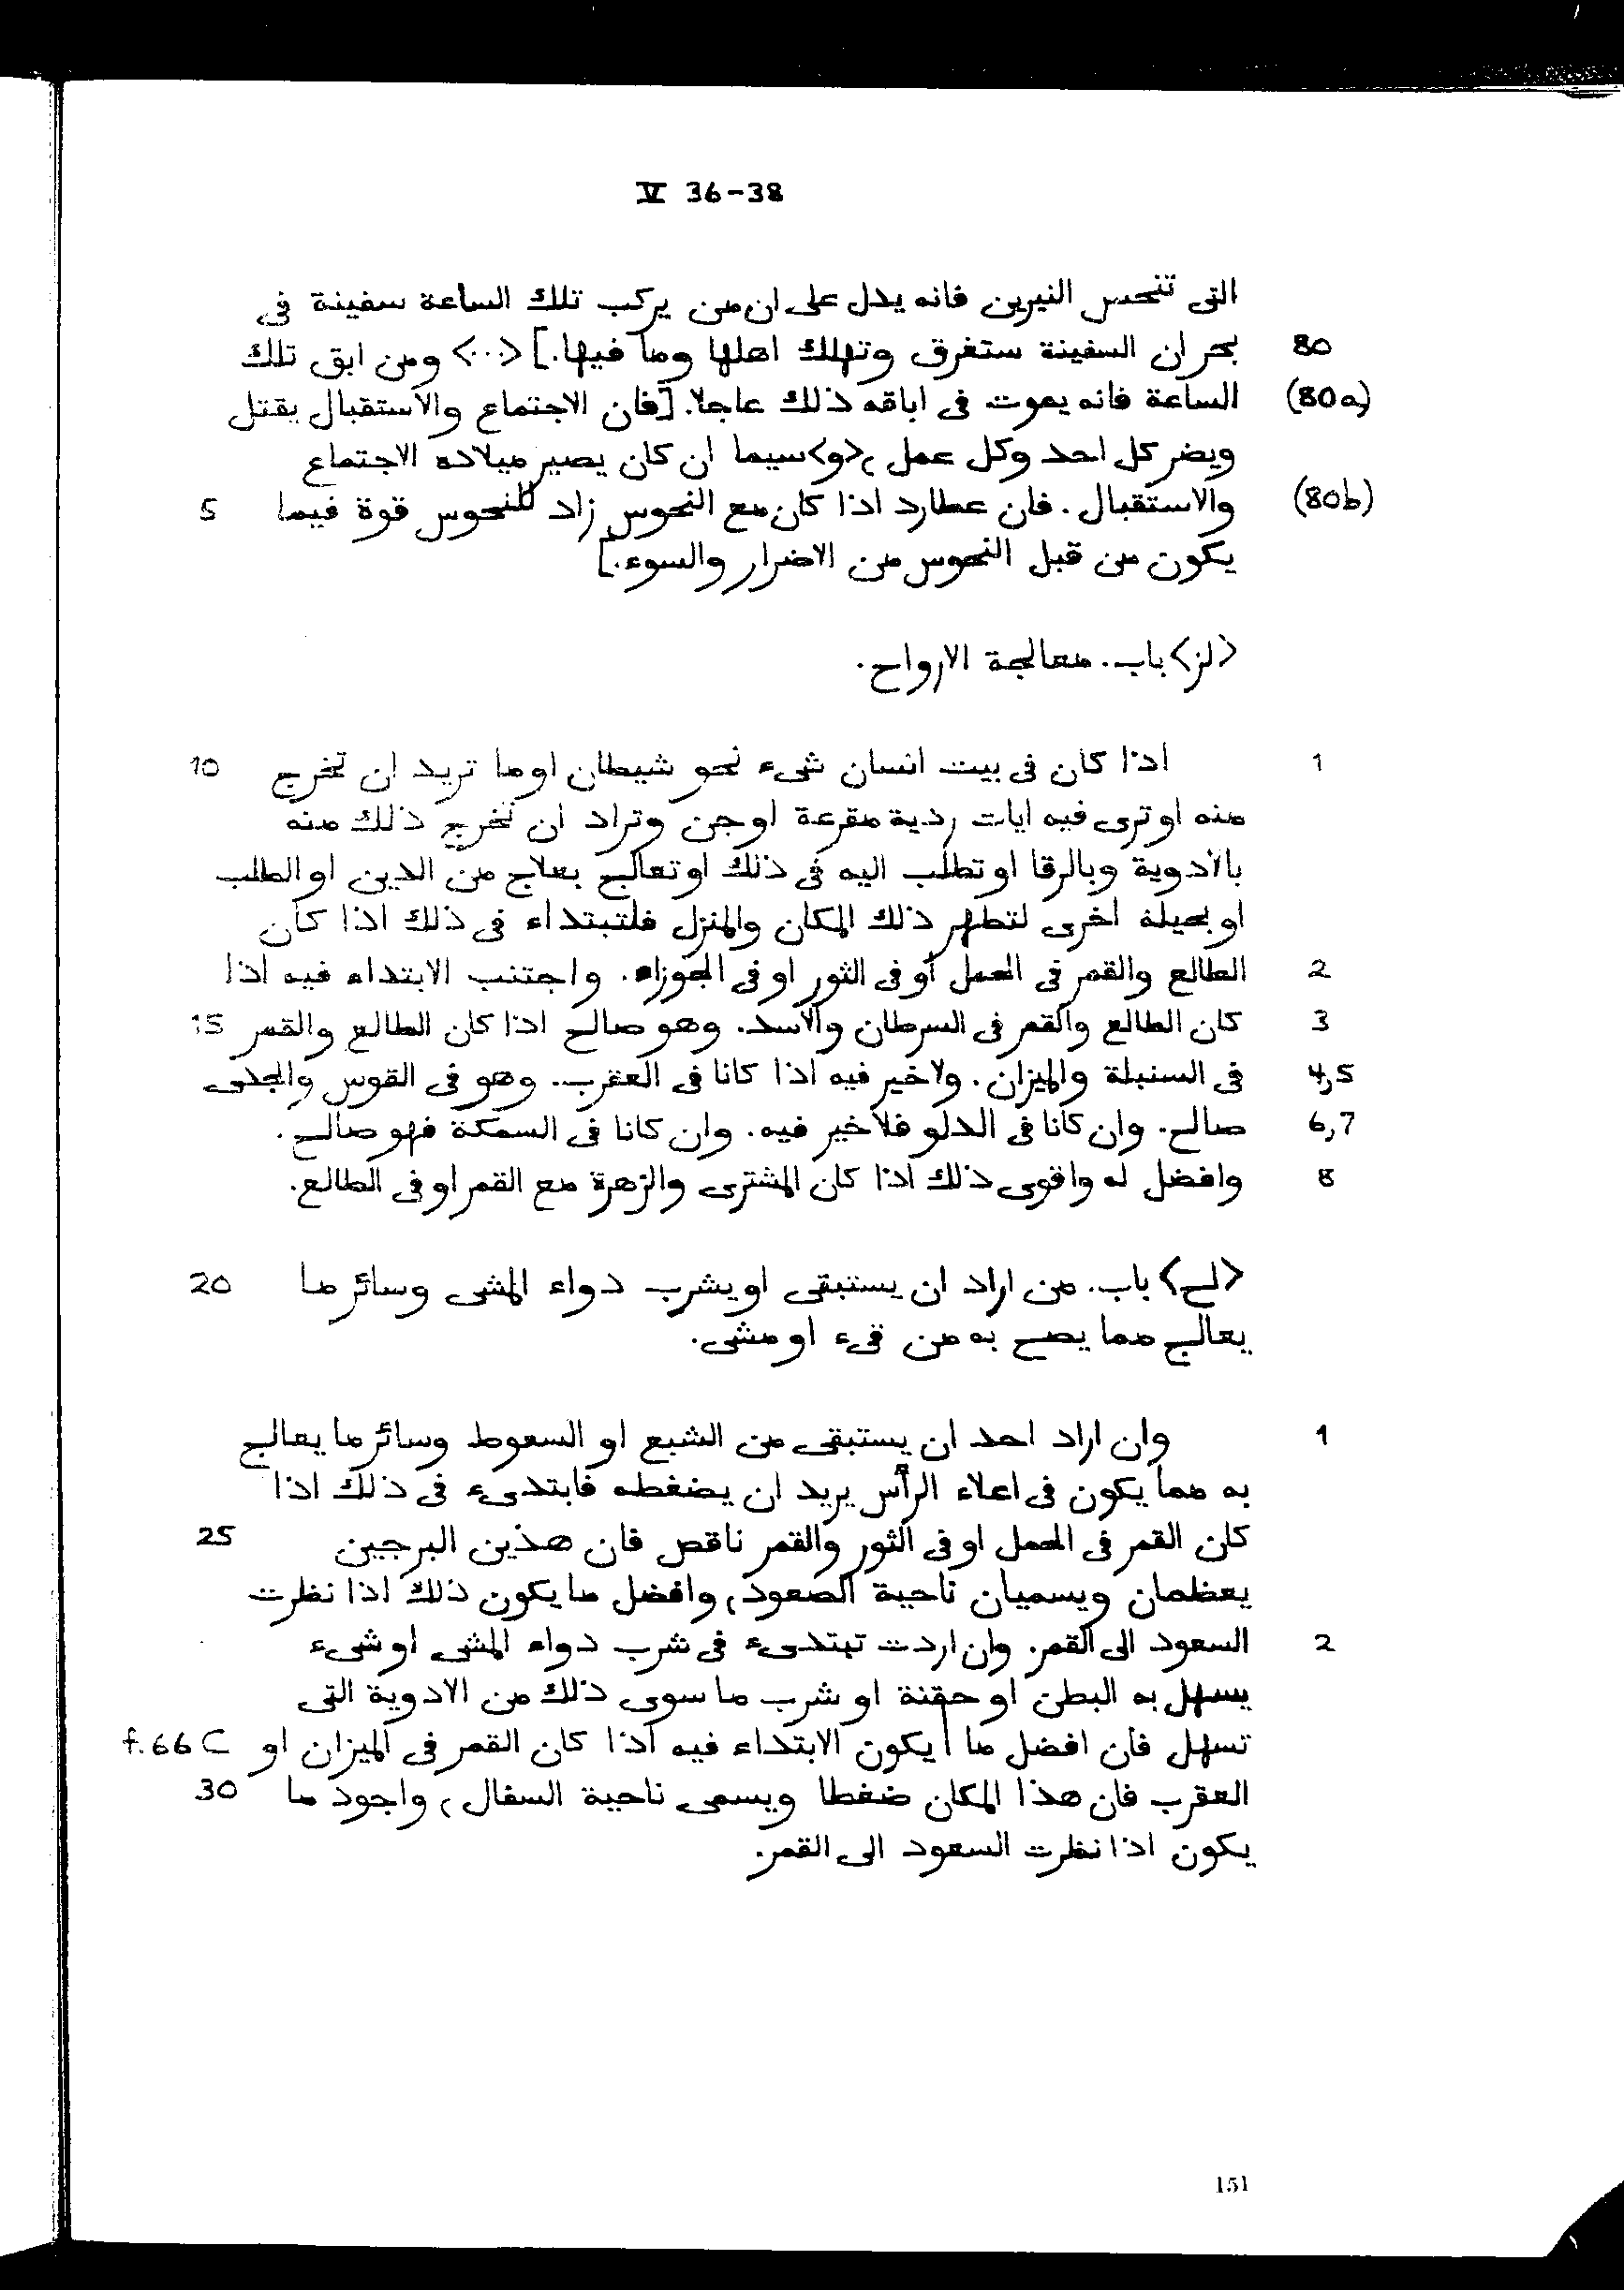 V 36-38
التى تنحس النيرين فانه يدل على ان من يركب تلك الساعة سفينة فى
80 بحر ان السفينة ستغرق وتهلك اهلها وما فيها.] <...> ومن ابق تلك
(80a) الساعة فانه يموت فى اباقه ذلك عاجلا. [فان الاجتماع والاستقبال يقتل
ويضر كل احد وكل عمل، <و>سيما ان كان يصير ميلاده الاجتماع
(80b) والاستقبال. فان عطارد اذا كان مع النحوس زاد للنحوس قوة فيما 5
يكون من قبل النحوس من الاضرار والسوء.]
<لز> باب. معالجة الارواح.
1 اذا كان فى بيت انسان شىء نحو شيطان او ما تريد ان تخرج 10
منه او ترى فيه ايات ردية مقرعة او جن وتراد ان تخرج ذلك منه
بالادوية وبالرقا او تطلب اليه فى ذلك او تعالج بعلاج من الدين او الطلب
او بحيلة اخرى لتطهر ذلك المكان والمنزل فلتبتداء فى ذلك اذا كان
2 الطالع والقمر فى الحمل او فى الثور او فى الجوزاء. واجتنب الابتداء فيه اذا
3 كان الطالع والقمر فى السرطان والاسد. وهو صالح اذا كان الطالع والقمر 15
4,5 فى السنبلة والميزان. ولا خير فيه اذا كانا فى العقرب. وهو فى القوس والجدى
6,7 صالح. وان كانا فى الدلو فلا خير فيه. وان كانا فى السمكة فهو صالح.
8 وافضل له واقوى ذلك اذا كان المشترى والزهرة مع القمر او فى الطالع.
<لح> باب. من اراد ان يستبقى او يشرب دواء المشى وسائر ما 20
يعالج مما يصح به من قىء او مشى.
1 وان اراد احد ان يستبقى من الشبع او السعوط وسائر ما يعالج
به مما يكون فى اعلاء الرأس يريد ان يضغطه فابتدىء فى ذلك اذا
كان القمر فى الحمل او فى الثور والقمر ناقص فان هذين البرجين 25
يعظمان ويسميان ناحية الصعود، وافضل ما يكون ذلك اذا نظرت
2 السعود الى القمر. وان اردت تبتدىء فى شرب دواء المشى او شىء
يسهل به البطن او حقنة او شرب ما سوى ذلك من الادوية التى
تسهل فان افضل ما | يكون الابتداء فيه اذا كان القمر فى الميزان او f.66 C
العقرب فان هذا المكان ضغطا ويسمى ناحية السفال، واجود ما 30
يكون اذا نظرت السعود الى القمر.
151